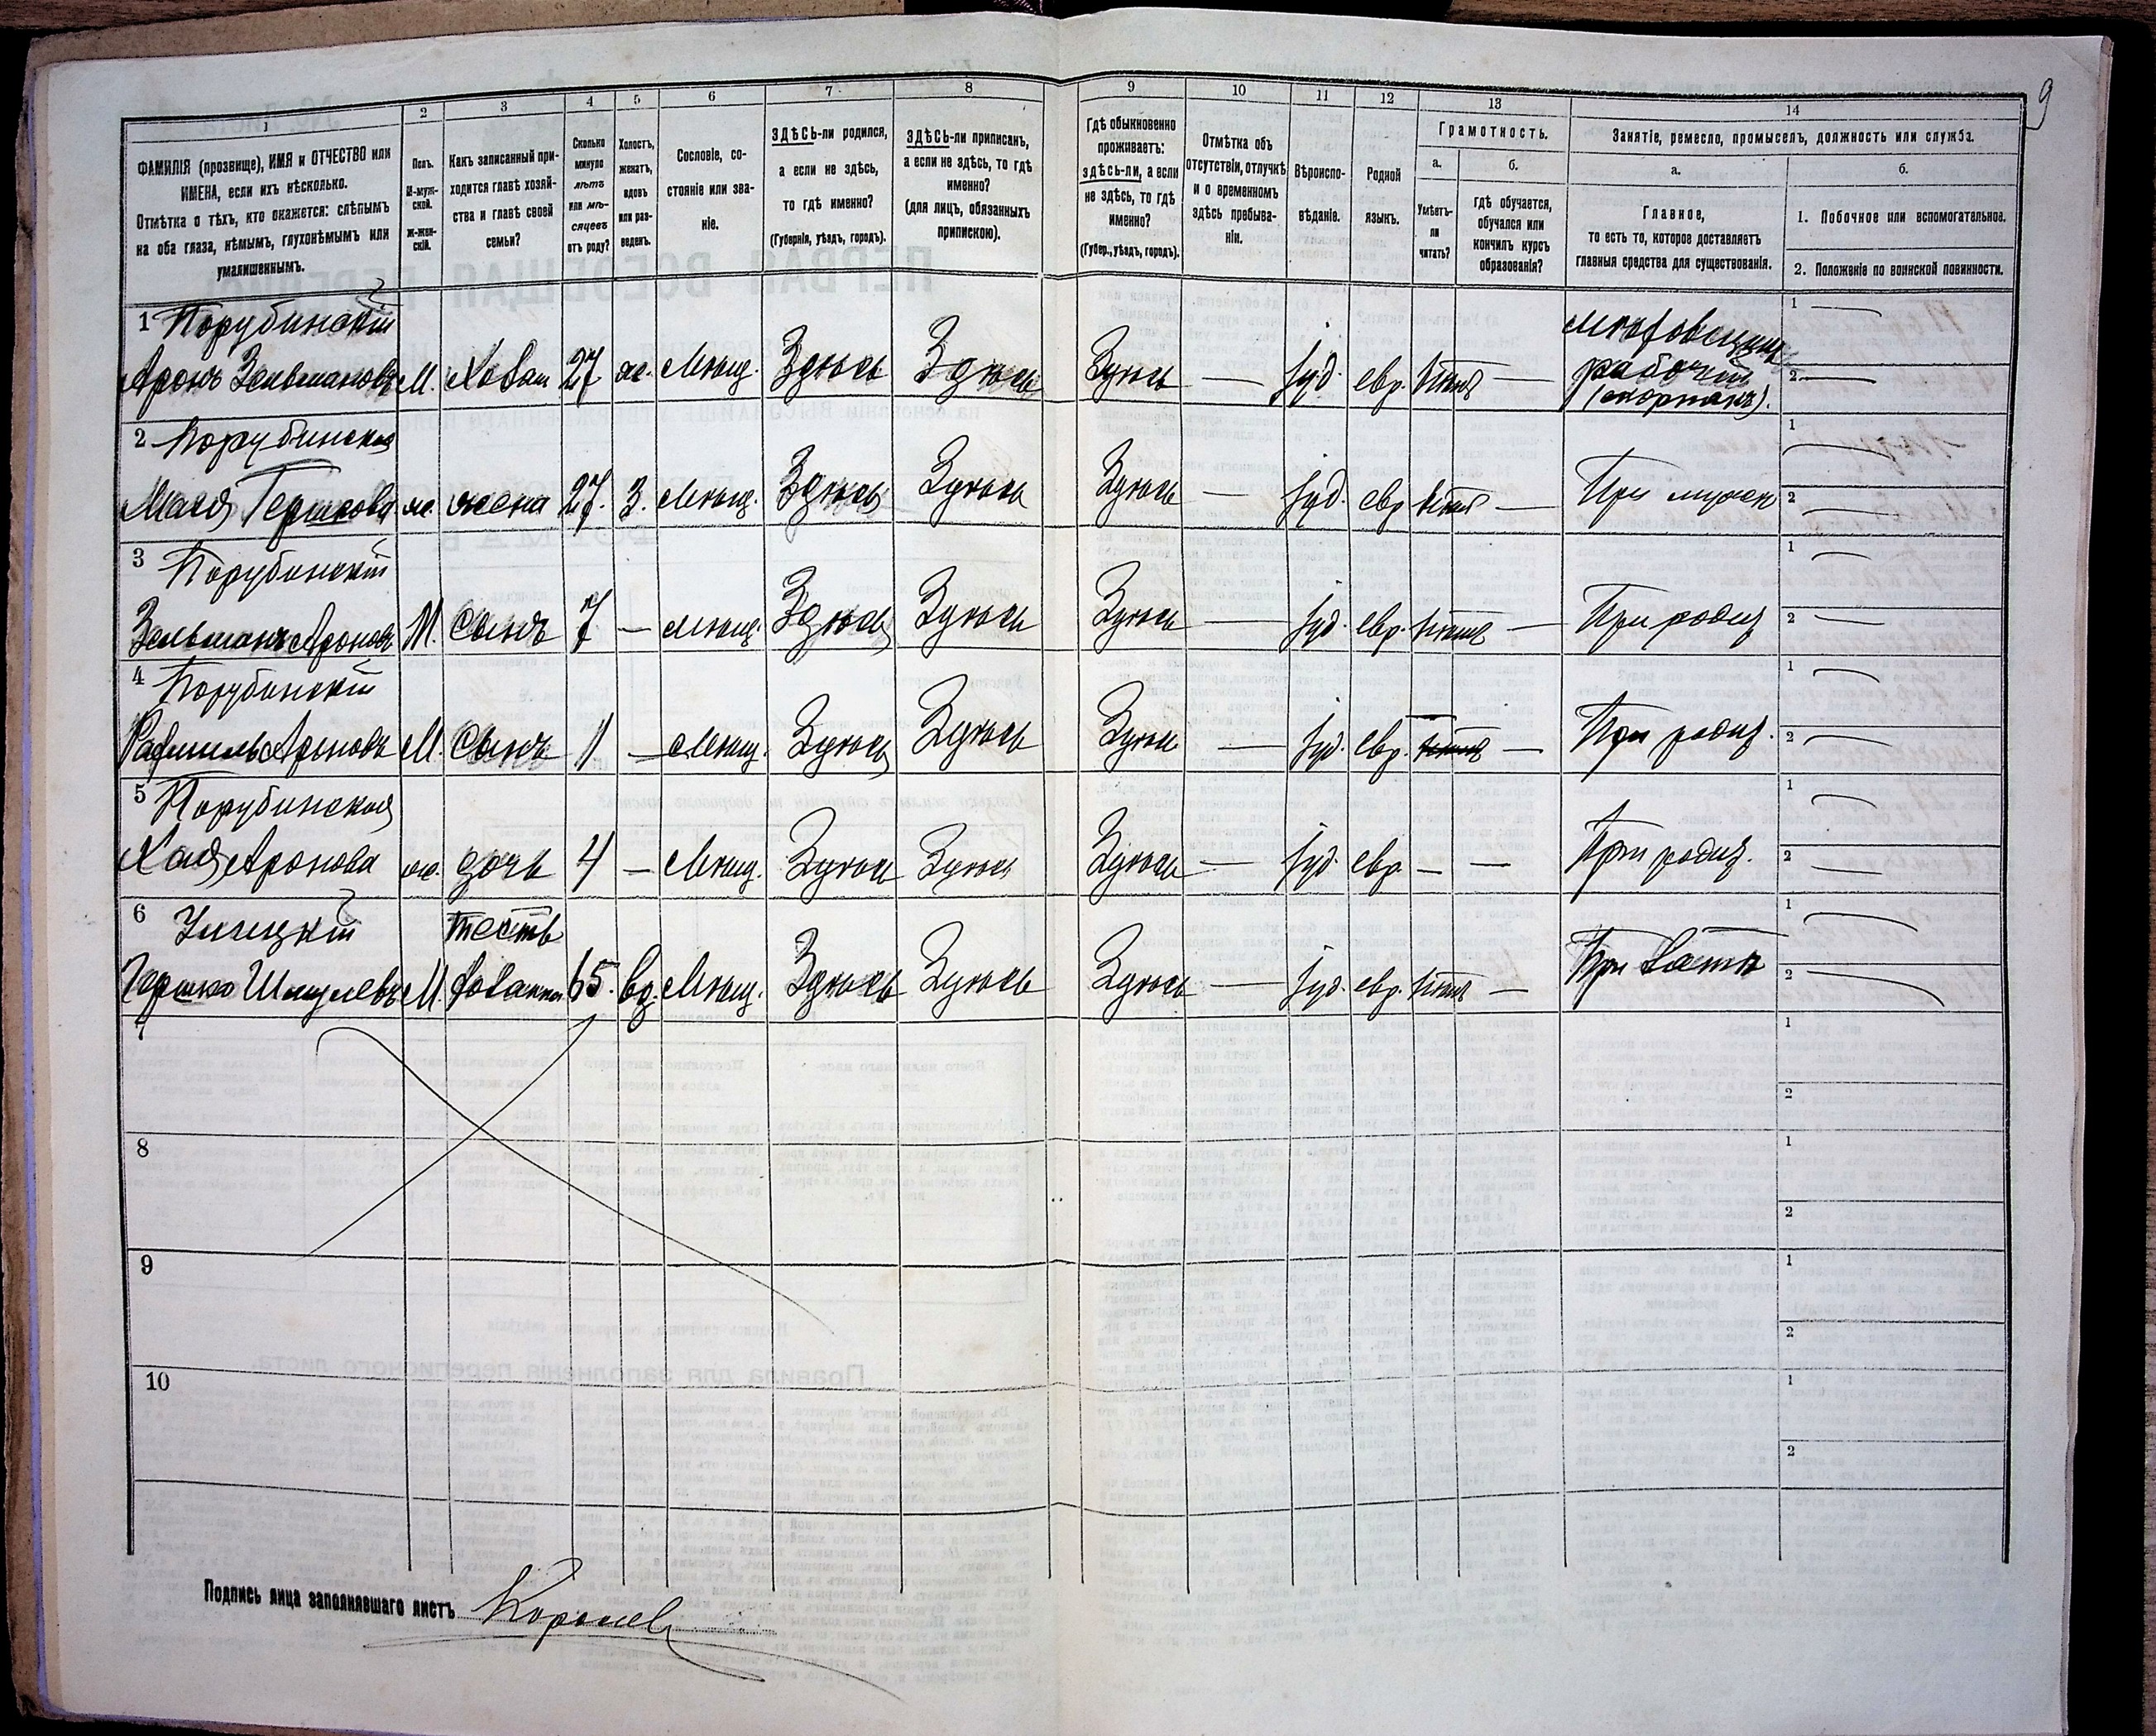 9
1 2 3 4 5 6 7 8 9 10 11 12 13 14
ФАМИЛІЯ (прозвище), ИМЯ и ОТЧЕСТВО или
ИМЕНА, если ихъ нѣсколько.
Отмѣтка о тѣхъ, кто окажется: слѣпымъ
на оба глаза, нѣмымъ, глухонѣмымъ или
умалишеннымъ.
Полъ.
М-муж-
ской.
Ж-жен-
скій.
Какъ записанный при-
ходится главѣ хозяй-
ства и главѣ своей
семьи?
Сколько
минуло
лѣтъ
или мѣ-
сяцевъ
отъ роду?
Холостъ,
женатъ,
вдовъ
или раз-
веденъ.
Сословіе, со-
стояніе или зва-
ніе.
ЗДѢСЬ-ли родился,
а если не здѣсь,
то гдѣ именно?
(Губернія, уѣздъ, городъ).
ЗДѢСЬ-ли приписанъ,
а если не здѣсь, то гдѣ
именно?
(для лицъ, обязанныхъ
припискою).
Гдѣ обыкновенно
проживаетъ:
здѣсь-ли, а если
не здѣсь, то гдѣ
именно?
(Губер., уѣздъ, городъ).
Отмѣтка объ
отсутствіи, отлучкѣ
и о временномъ
здѣсь пребыва-
ніи.
Вѣроиспо-
вѣданіе.
Родной
языкъ.
Грамотность.
а.
Умѣетъ-
ли
читать?
б.
гдѣ обучается,
обучался или
кончилъ курсъ
образованія?
Занятіе, ремесло, промыселъ, должность или служба.
а.
Главное,
то есть то, которое доставляетъ
главныя средства для существованія.
б.
1. Побочное или вспомогательное.
2. Положеніе по воинской повинности.
1 Порубинскій
Аронъ Зельмановъ М. Хозяин 27 ж. Мѣщ. Здѣсь Здѣсь Здѣсь — Іуд. евр. —
рабочій
1 —
2 —
2 Порубинская
Мася Гершкова ж. жена 27. З. Мѣщ. Здѣсь Здѣсь Здѣсь — Іуд. евр. — При мужѣ
1 —
2 —
3 Порубинскій
Зельманъ Ароновъ М. Сынъ 7 — Мѣщ. Здѣсь Здѣсь Здѣсь — Іуд. евр. — При родит
1 —
2 —
4 Порубинскій
Ароновъ М. Сынъ 1 — Мѣщ. Здѣсь Здѣсь Здѣсь — Іуд. евр. — При родит.
1 —
2 —
5 Порубинская
Хая Аронова ж. дочь 4 — Мѣщ. Здѣсь Здѣсь Здѣсь — Іуд. евр — — При родит.
1 —
2 —
6 тесть
Гершко Шмулевъ М. хозяина 65. вд. Мѣщ. Здѣсь Здѣсь Здѣсь — Іуд. евр. — При зятѣ
1 —
2 —
7
1
2
8
1
2
9
1
2
10
1
2
Подпись лица заполнявшаго листъ